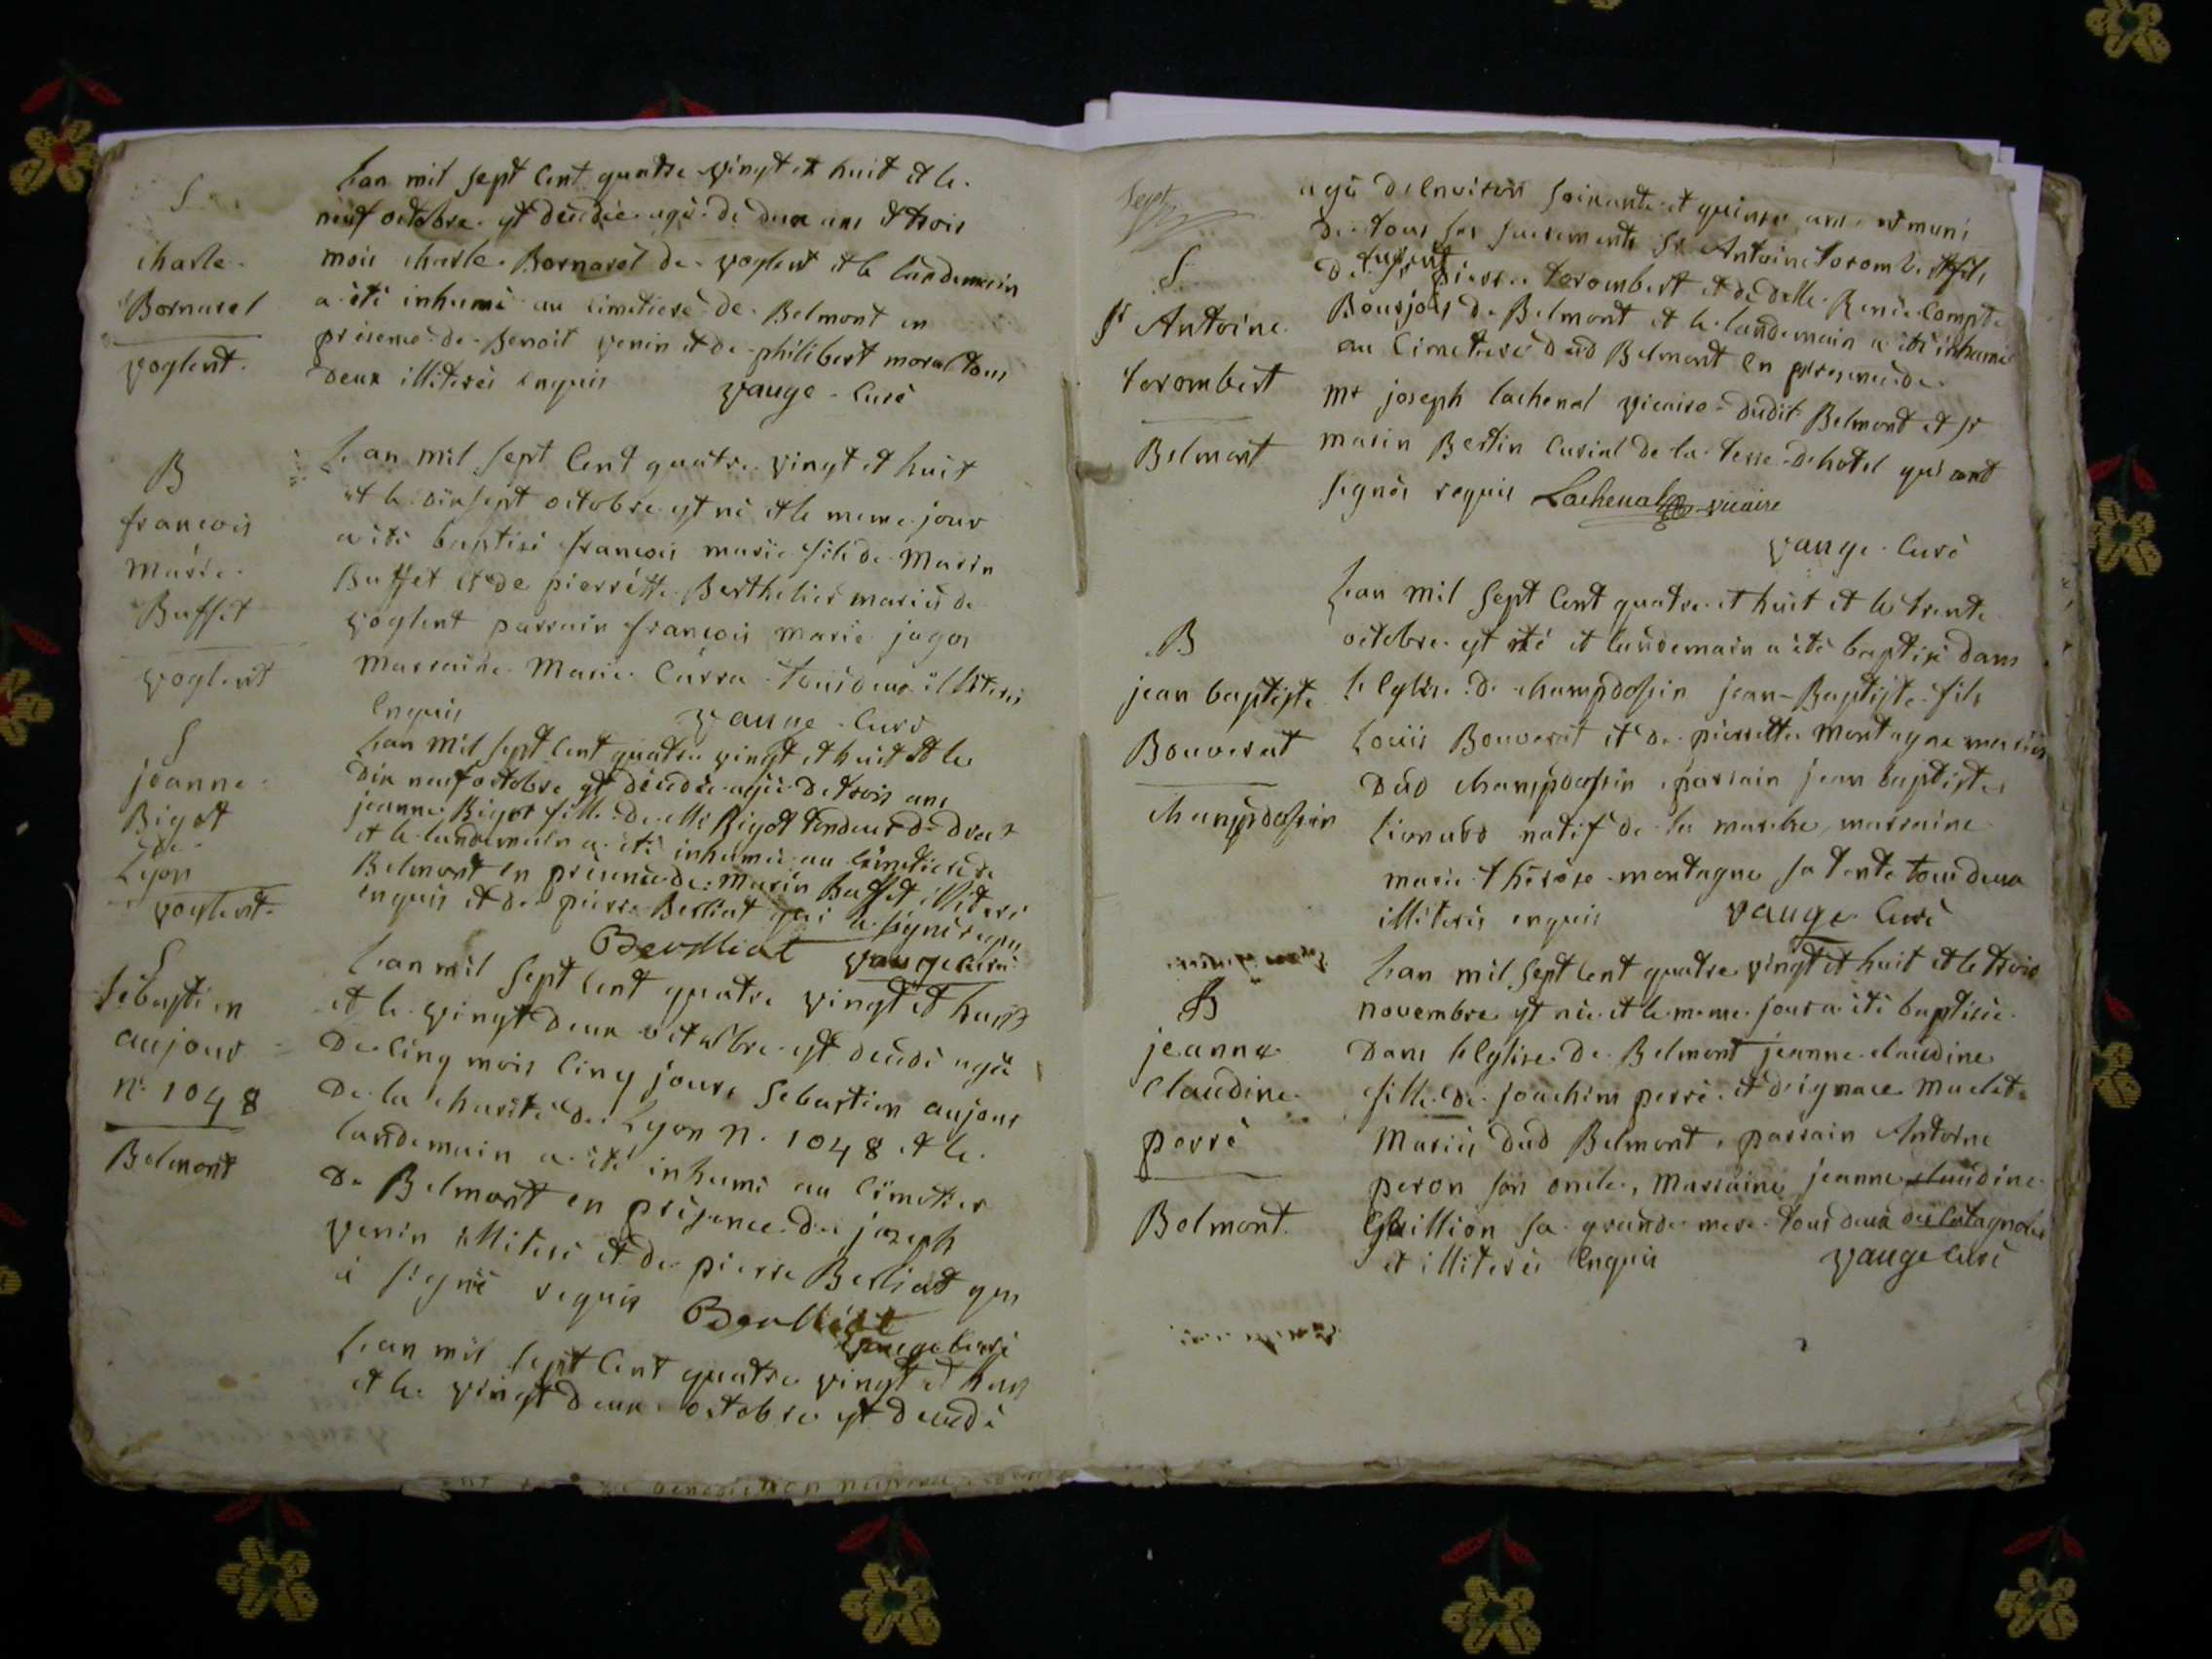 S
charle
Bornarel
voglent.
Lan mil sept Cent quatre vingt et huit et le
neuf octobre est decedée agé de deux ans et trois
mois charle Bornarel de voglent et le landemain
a été inhumé au cimetiere de Belmont en
présence de Benoit venin et de philibert moral tous
deux illiterés enquis vauge Curé
B
francois
marie
Buffet
voglent
Lan mil sept Cent quatre vingt et huit
et le dix sept octobre est né et le meme jour
a été baptisé francois marie fils de Marin
Buffet et de pierrette Berthelier mariés de
voglent parrain francois marie
marraine Marie Curra tous deux illiterés
Enquis vauge Curé
S
jeanne
Bigot
de
Lyon
voglent
Lan mil sept Cent quatre vingt et huit et le
dix neuf octobre est décedée agée de trois ans
jeanne Bigot fille de Mr Bigot tondeur de drat
et le landemain a été inhumée au cimetiere de
Belmont en présence de Marin Buffet illiteré
enquis et de pierre Berliat qui a signé requis
Berlliat vauge curé
S
Sebastien
aujour
n. 1048
Belmont
Lan mil sept Cent quatre vingt et huit
et le vingt deux octobre est décédé agé
de Cinq mois Cinq jours Sebastien aujour
de la charité de Lyon n. 1048 et le
landemain a été inhumé au cimetier
de Belmont en présence de jozeph
venin illiteré et de pierre Berliat qui
a signé requis Berlliat
vauge curé
Lan mil sept Cent quatre vingt et huit
et le vingt deux octobre est decedé
Sept
S
sr Antoine
torombert
Belmont
agé denviron soixante et quinze ans et muni
de tous ses sacrements sr Antoine torombert fils
de sr pierre torombert et de delle Renée Compte
Bourjois de Belmont et le landemain a été inhumé
au Cimetiere dud Belmont en présence de
mr joseph lachenal vicaire dudit Belmont et sr
marin Bertin Curial de la terre dhotel qui ont
signés requis Lachenal vicaire
vauge Curé
B
jean baptiste
Bouverat
champdossin
Lan mil sept Cent quatre et huit et le trente
octobre est né et landemain a été baptisé dans
leglise de champdossin jean-Baptiste fils
Louis Bouverat et de pierrette Montagne mariés
dud champdossin parrain jean baptiste
lionard natif de la marbre marraine
marie thérése montagne sa tente tous deux
illiterés enquis vauge Curé
B
jeanne
Claudine
perré
Belmont.
Lan mil sept Cent quatre vingt et huit et le trois
novembre est née et le meme jour a été baptisée
dans leglise de Belmont jeanne claudine
fille de joachim perré et dignace Muclet
Mariés dud Belmont, parrain Antoine
peron son oncle, Marraine jeanne claudine
Guillion sa grande mere tous deux
et illiterés Enquis vauge Curé